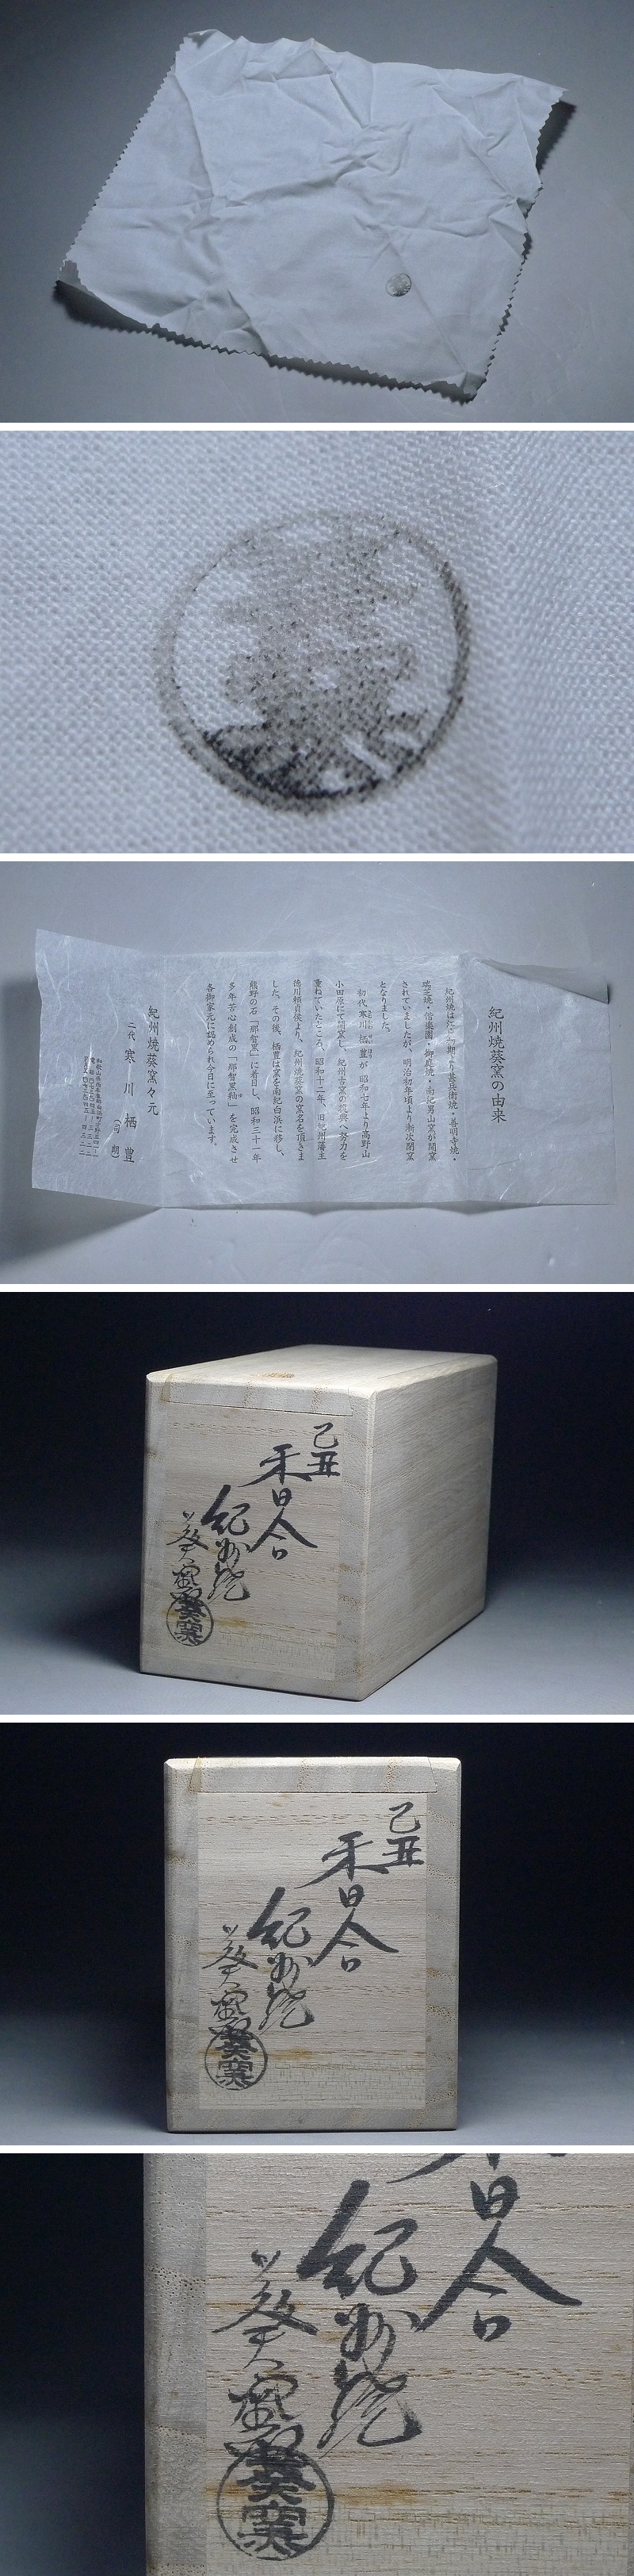 紀州焼葵窯の由来
紀州焼は江戸初期より甚兵衛焼・善明寺焼・
瑞芝焼・偕楽園・御庭焼・南紀男山窯が開窯
されていましたが、明治初年頃より漸次閉窯
となりました。
初代寒川栖豊が昭和七年より高野山
小田原にて開窯し、紀州古窯の復興へ努力を
重ねていたところ、昭和十二年、旧紀州藩主
徳川頼貞侯より、紀州焼葵窯の窯名を頂きま
した。その後、栖豊は窯を南紀白浜に移し、
熊野の石「那智黒」に着目し、昭和三十一年
多年苦心創成の「那智黒釉」を完成させ
各御家元に認められ今日に至っています。
紀州焼葵窯々元
二代 寒川栖豊
己丑
香合
紀州焼
葵窯
葵窯
己丑
香合
紀州焼
葵窯
葵窯
紀州焼
葵窯
葵窯